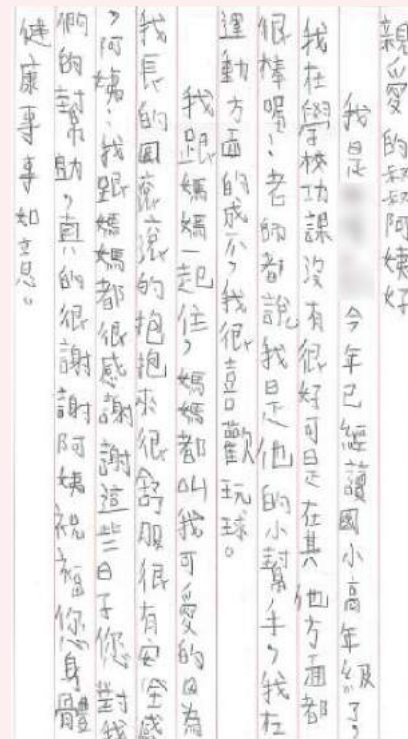 親愛的叔叔阿姨好
我是 今年已經讀國小高年級了,
我在學校功課沒有很好可是在其他方面都
很棒喔!老師都說我是他的小幫手,我在
運動方面的成分,我很喜歡玩球。
我跟媽媽一起住,媽媽都叫我可愛的因為
我長的圓滾滾的抱抱來很舒服很有安全感
,阿姨:我跟媽媽都很感謝謝這些日子您對我
們的幫助,真的很謝謝阿姨祝福您身體
健康事事如意。